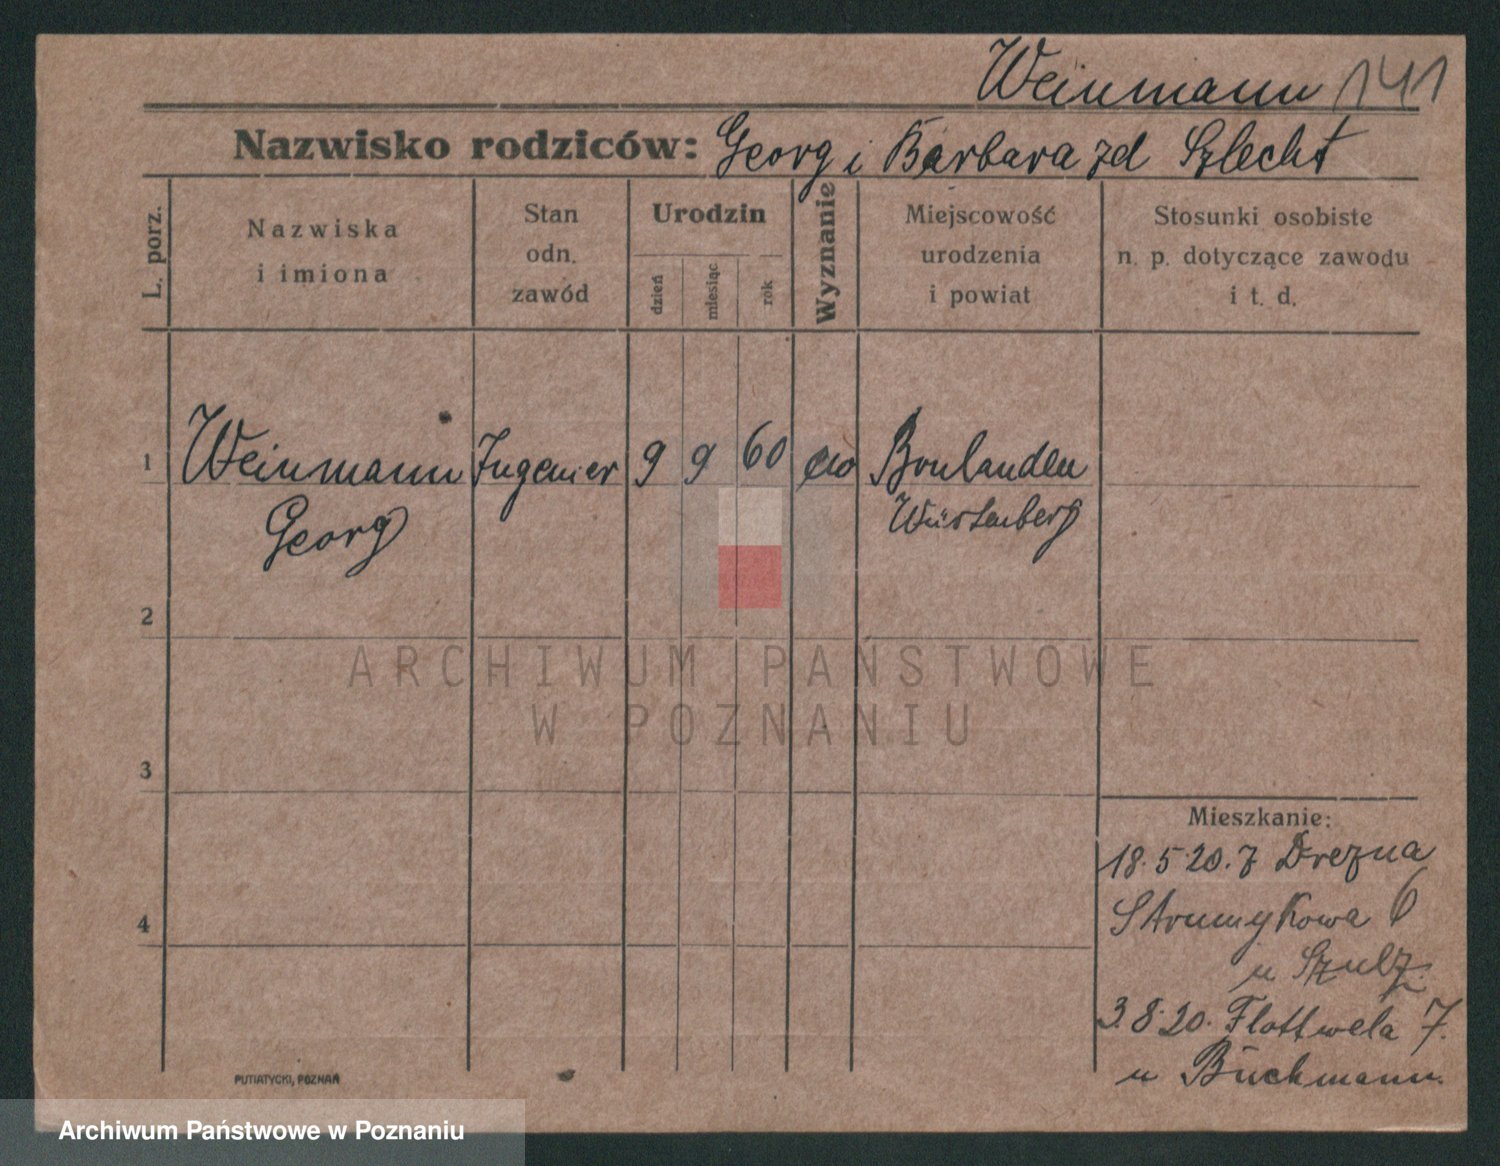 Weinmann 141
Nazwisko rodziców: Georg i Barbara zd Szlecht
L. porz.
Nazwiska
i imiona
Stan
odn.
zawód
Urodzin
dzień
miesiąc
rok
Wyznanie
Miejscowość
urodzenia
i powiat
Stosunki osobiste
n. p. dotyczące zawodu
i t. d.
1 Weinmann Ingenier 9 9 60 Bonlanden
Georg Würtenberg
2
ARCHIWUM PAŃSTWOWE
W POZNANIU
3
Mieszkanie:
18.5.20. z Drezna
4 Strumykowa 6
u Szulz.
3.8.20. Flottwela 7.
u Buchmann.
PUTIATYCKI, POZNAŃ
Archiwum Państwowe w Poznaniu